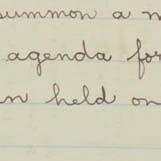 summon a
agenda for
held on